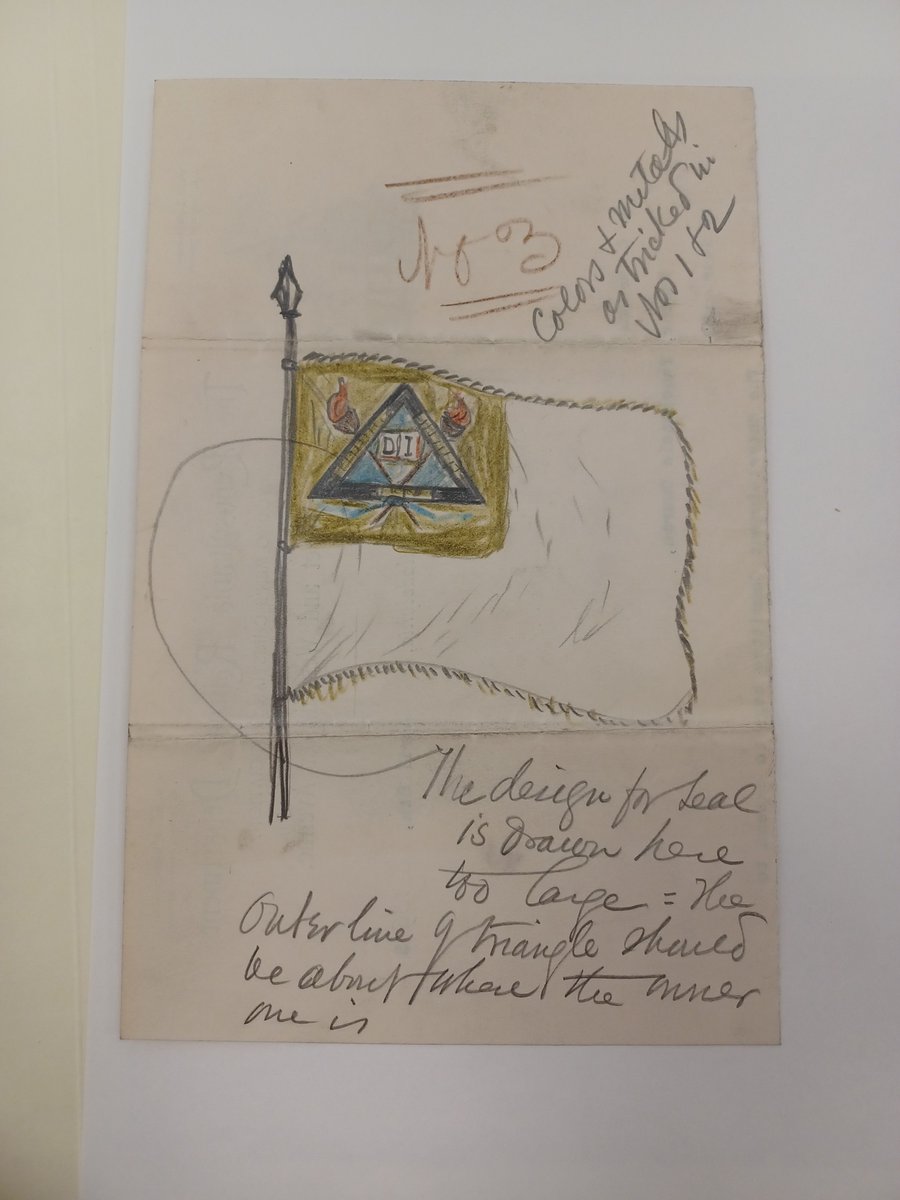 No 3
Colors & metals
as tricked in
Nos 1 & 2
D I
The design for seal
is drawn here
too large = The
outer line of triangle should
be about where the inner
one is